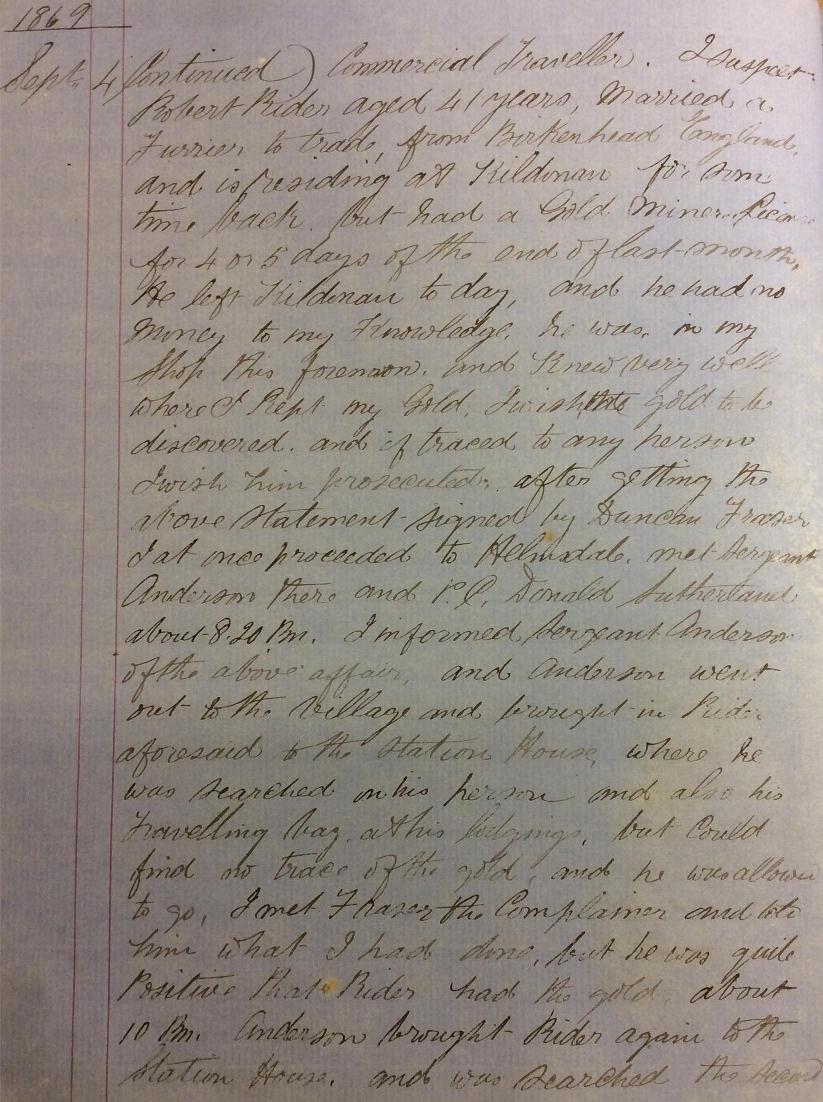 1869
Sept. 4 Continued) Commercial Traveller. I suspect
Robert Rider aged 41 years, Married a
Furrier to trade, from Birkenhead England,
and is residing at Kildonan for som
time back. but had a Gold Miners
for 4 or 5 days of the end of last month,
He left Kildonan to day, and he had no
Money to my Knowledge. he was, in my
Shop this forenoon, and Knew very well
where I Kept my Gold, I wish the gold to be
discovered. and if traced to any person
I wish him prosecuted. after getting the
above Statement signed by Duncan Fraser
I at once proceeded to Helmsdale. met Sergeant
Anderson there and P.C. Donald Sutherland
about 8.20 Pm. I informed Sergeant Anderson
of the above affair, and Anderson went
out to the Village and brought in Rider
aforesaid to the Station House, where he
was searched on his person and also his
Travelling bag at his lodgings, but could
find no trace of the gold, and he was allowed
to go, I met Fraser the Complainer and told
him what I had done, but he was quite
Positive that Rider had the gold, about
10 Pm. Anderson brought Rider again to the
Station House. and was searched the second